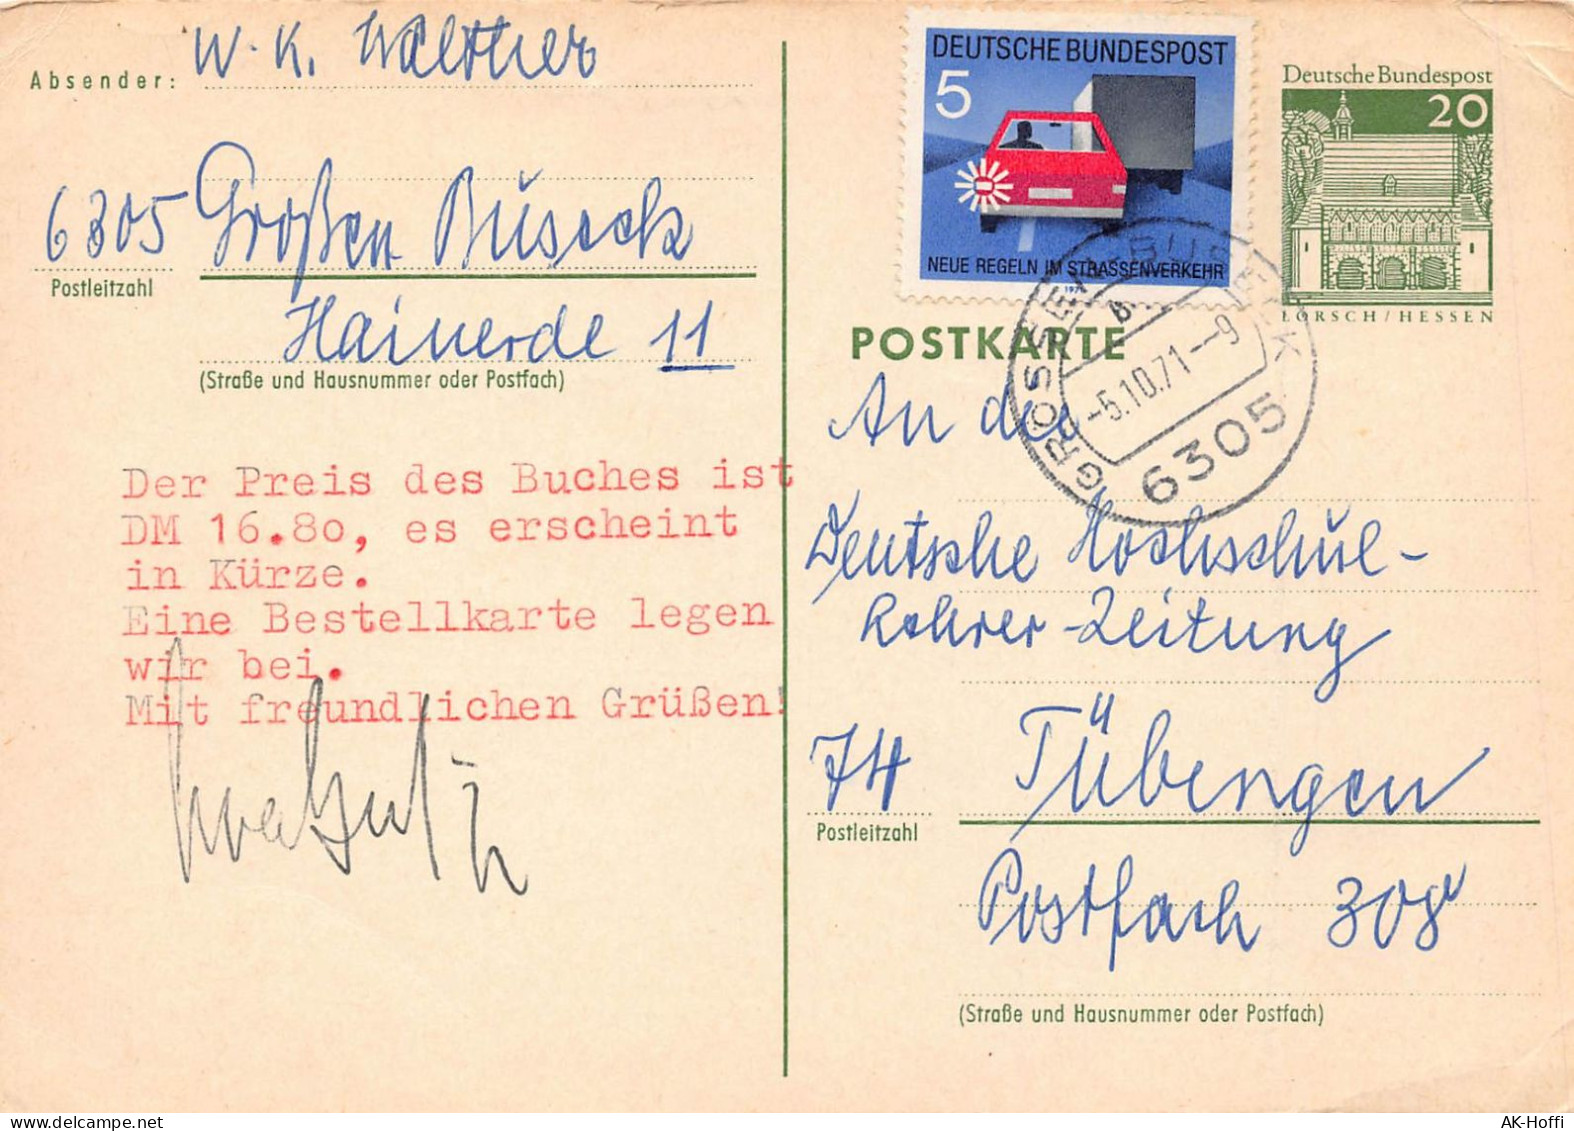 Absender: W. K. Walther
6305 Großen Buseck
Postleitzahl
Hainerde 11
(Straße und Hausnummer oder Postfach)
Der Preis des Buches ist
DM 16.80, es erscheint
in Kürze.
Eine Bestellkarte legen
wir bei.
Mit freundlichen Grüßen!
DEUTSCHE BUNDESPOST
5
NEUE REGELN IM STRASSENVERKEHR
1971
Deutsche Bundespost
20
LORSCH/HESSEN
POSTKARTE
GROSSEN-BUSECK
b
-5.10.71--9
6305
An die
Deutsche Hochschul-
Lehrer-Zeitung
74 Tübingen
Postleitzahl
Postfach 308
(Straße und Hausnummer oder Postfach)
AK-Hoffi